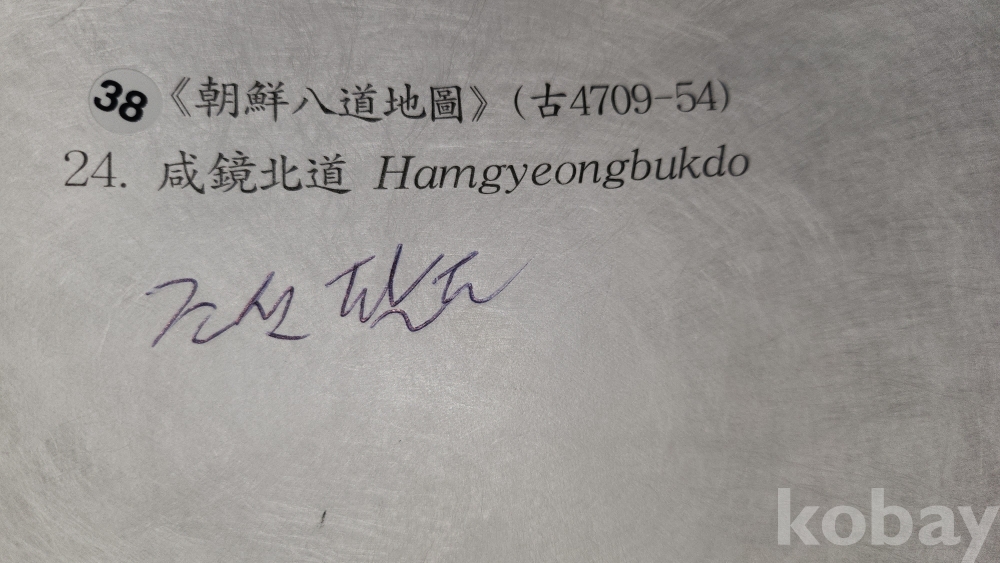 38 《朝鮮八道地圖》(古4709-54)
24. 咸鏡北道 Hamgyeongbukdo
조선 팔도
kobay